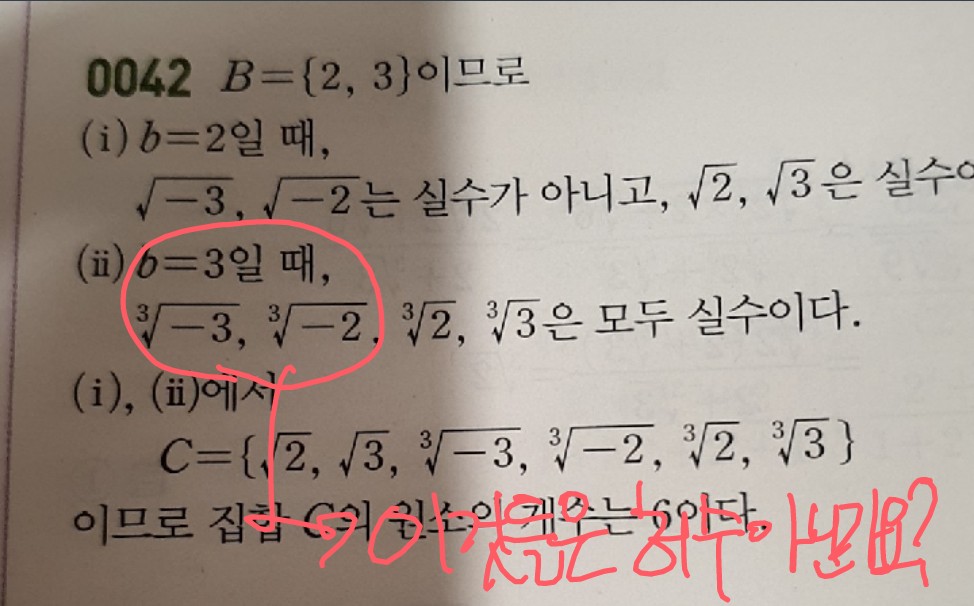 0042 B={2, 3}이므로
(i) b=2일 때,
√-3, √-2는 실수가 아니고, √2, √3은 실수이
(ii) b=3일 때,
∛-3, ∛-2, ∛2, ∛3은 모두 실수이다.
(i), (ii)에서
C={√2, √3, ∛-3, ∛-2, ∛2, ∛3}
이므로 집합 C의 원소의 개수는 6이다.
→ 이것들은 허수아닌가요?